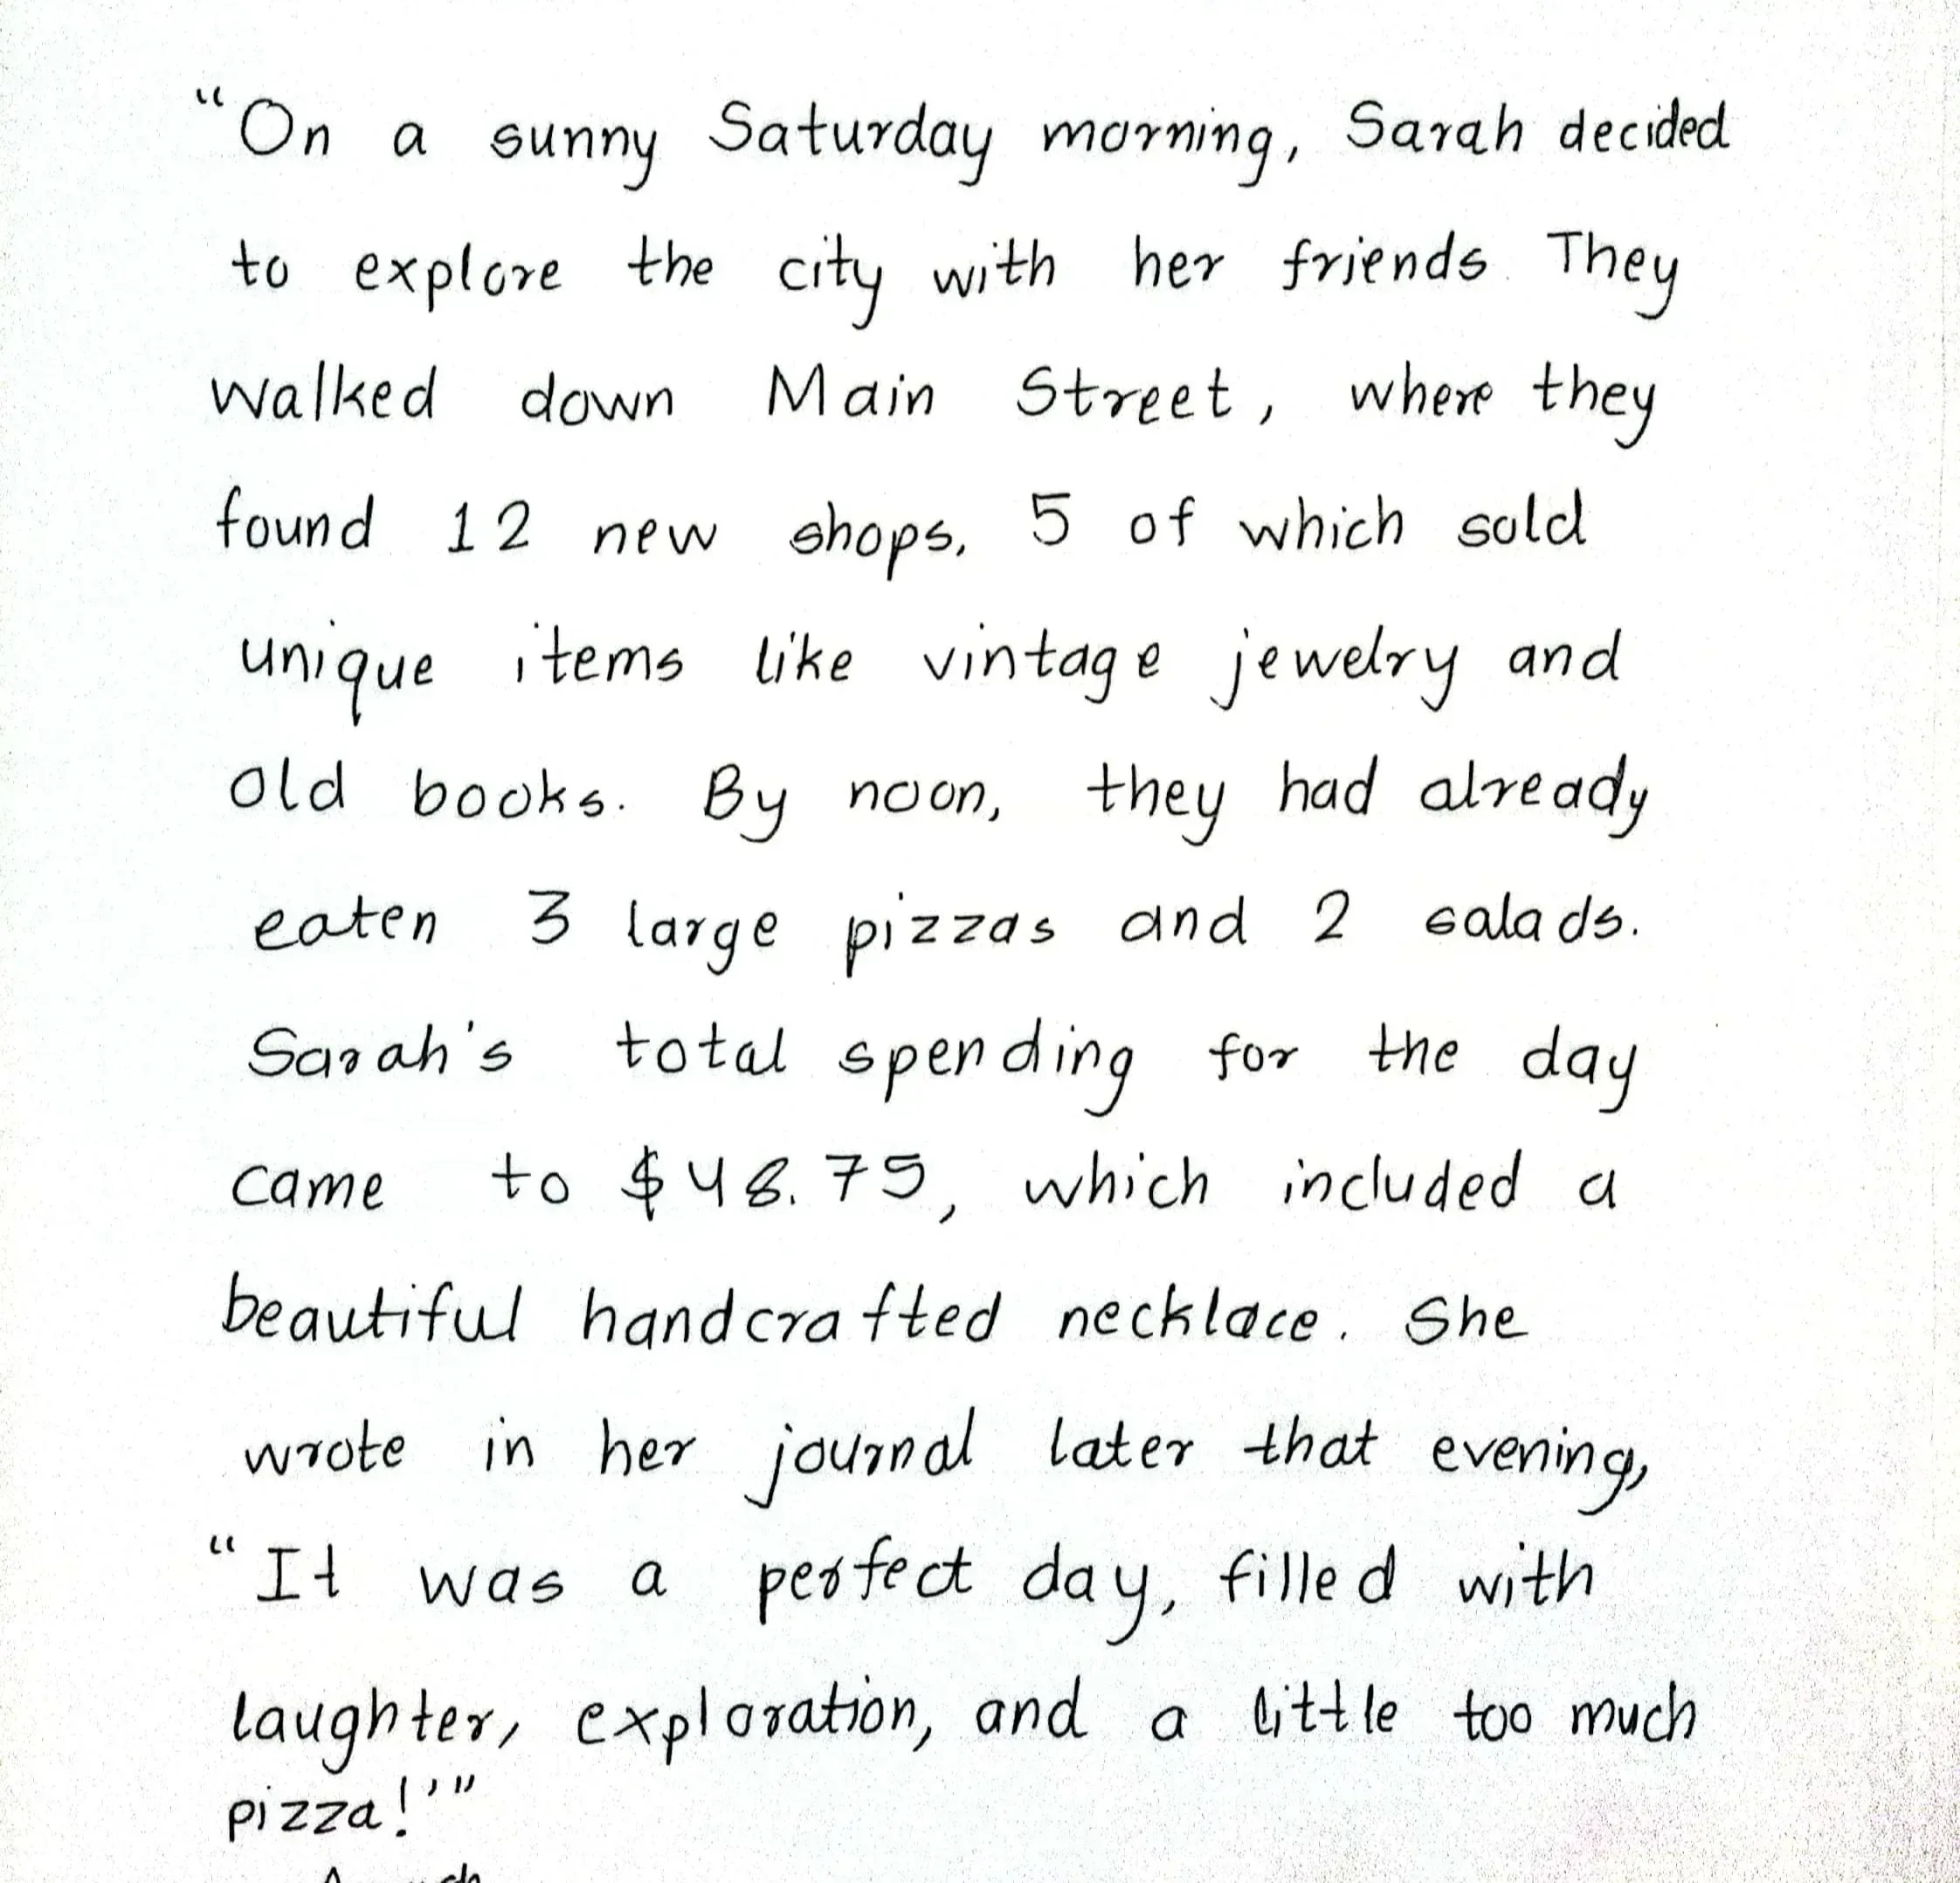 “On a sunny Saturday morning, Sarah decided
to explore the city with her friends. They
walked down Main Street, where they
found 12 new shops, 5 of which sold
unique items like vintage jewelry and
old books. By noon, they had already
eaten 3 large pizzas and 2 salads.
Sarah's total spending for the day
came to $48.75, which included a
beautiful handcrafted necklace. She
wrote in her journal later that evening,
“It was a perfect day, filled with
laughter, exploration, and a little too much
pizza!’”